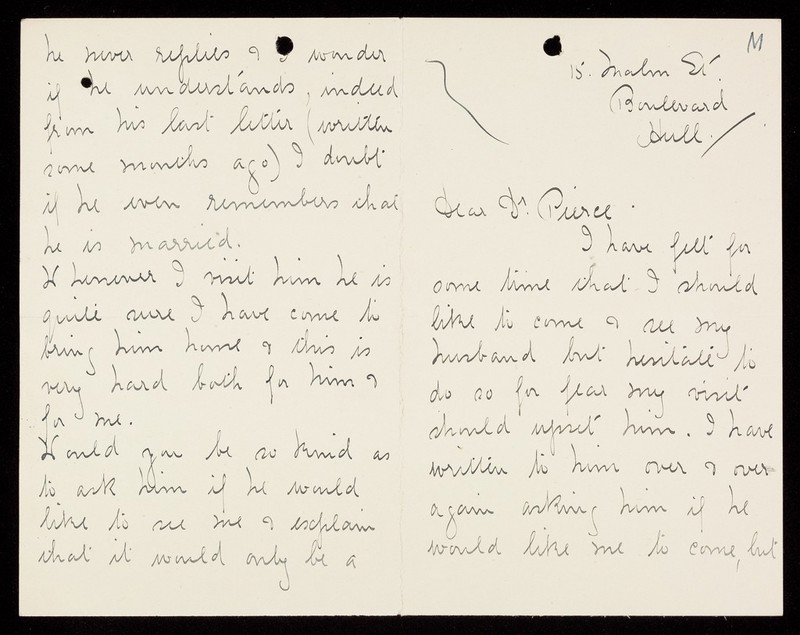 M
15. Malm St.
Boulevard
Hull.
Dear Dr. Pierce.
I have felt for
some time that I should
like to come & see my
husband but hesitate to
do so for fear my visit
should upset him. I have
written to him over & over
again asking him if he
would like me to come, but
he never replies & I wonder
if he understands, indeed
from his last letter (written
some months ago) I doubt
if he even remembers that
he is married.
Whenever I visit him he is
quite sure I have come to
bring him home & this is
very hard both for him &
for me.
Would you be so kind as
to ask him if he would
like to see me & explain
that it would only be a